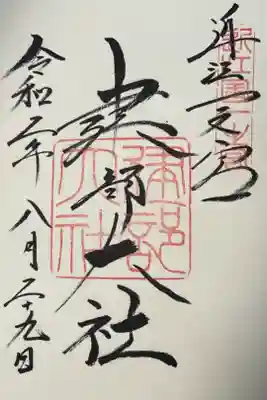 近江一之宮
建部大社
建部大社
令和二年八月二十九日